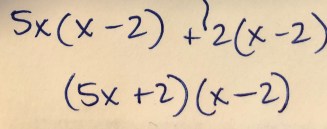 5x(x-2) + 2(x-2)
(5x+2)(x-2)